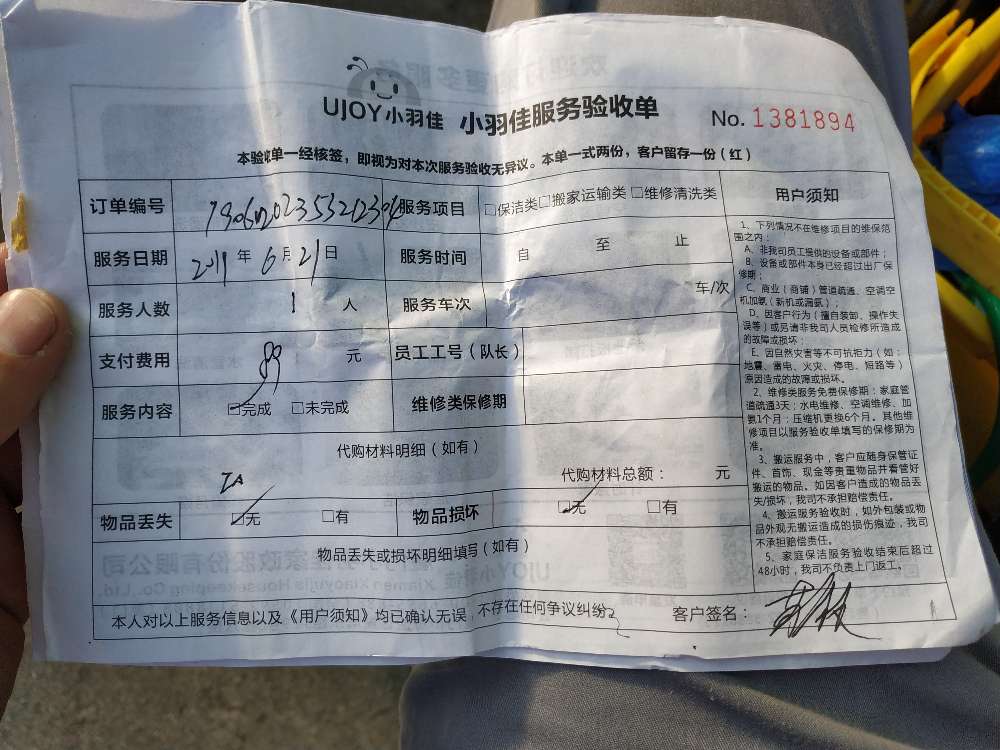 UJOY小羽佳 小羽佳服务验收单 No. 1381894
本验收单一经核签，即视为对本次服务验收无异议。本单一式两份，客户留存一份（红）
订单编号 服务项目 □保洁类□搬家运输类□维修清洗类
服务日期 年 6月21日 服务时间 自 至 止
服务人数 1 人 服务车次 车/次
支付费用 89 元 员工工号（队长）
服务内容 □完成 □未完成 维修类保修期
代购材料明细（如有）
代购材料总额： 元
物品丢失 □无 □有 物品损坏 □无 □有
物品丢失或损坏明细填写（如有）
本人对以上服务信息以及《用户须知》均已确认无误，不存在任何争议纠纷。 客户签名：
用户须知
1、下列情况不在维修项目的维保范
围之内：
A、非我司员工提供的设备或部件；
B、设备或部件本身已经超过出厂保
修期；
C、商业（商铺）管道疏通、空调空
机加氨（新机或漏氨）；
D、因客户行为（擅自装卸、操作失
误等）或另请非我司人员检修所造成
的故障或损坏；
E、因自然灾害等不可抗拒力（如：
地震、雷电、火灾、停电、短路等）
原因造成的故障或损坏。
2、维修类服务免费保修期：家庭管
道疏通3天；水电维修、空调维修、加
氨1个月；压缩机更换6个月。其他维
修项目以服务验收单填写的保修期为
准。
3、搬运服务中，客户应随身保管证
件、首饰、现金等贵重物品并看管好
搬运的物品。如因客户造成的物品丢
失/损坏，我司不承担赔偿责任。
4、搬运服务验收时，如外包装或物
品外观无搬运造成的损伤痕迹，我司
不承担赔偿责任。
5、家庭保洁服务验收结束后超过
48小时，我司不负责上门返工。